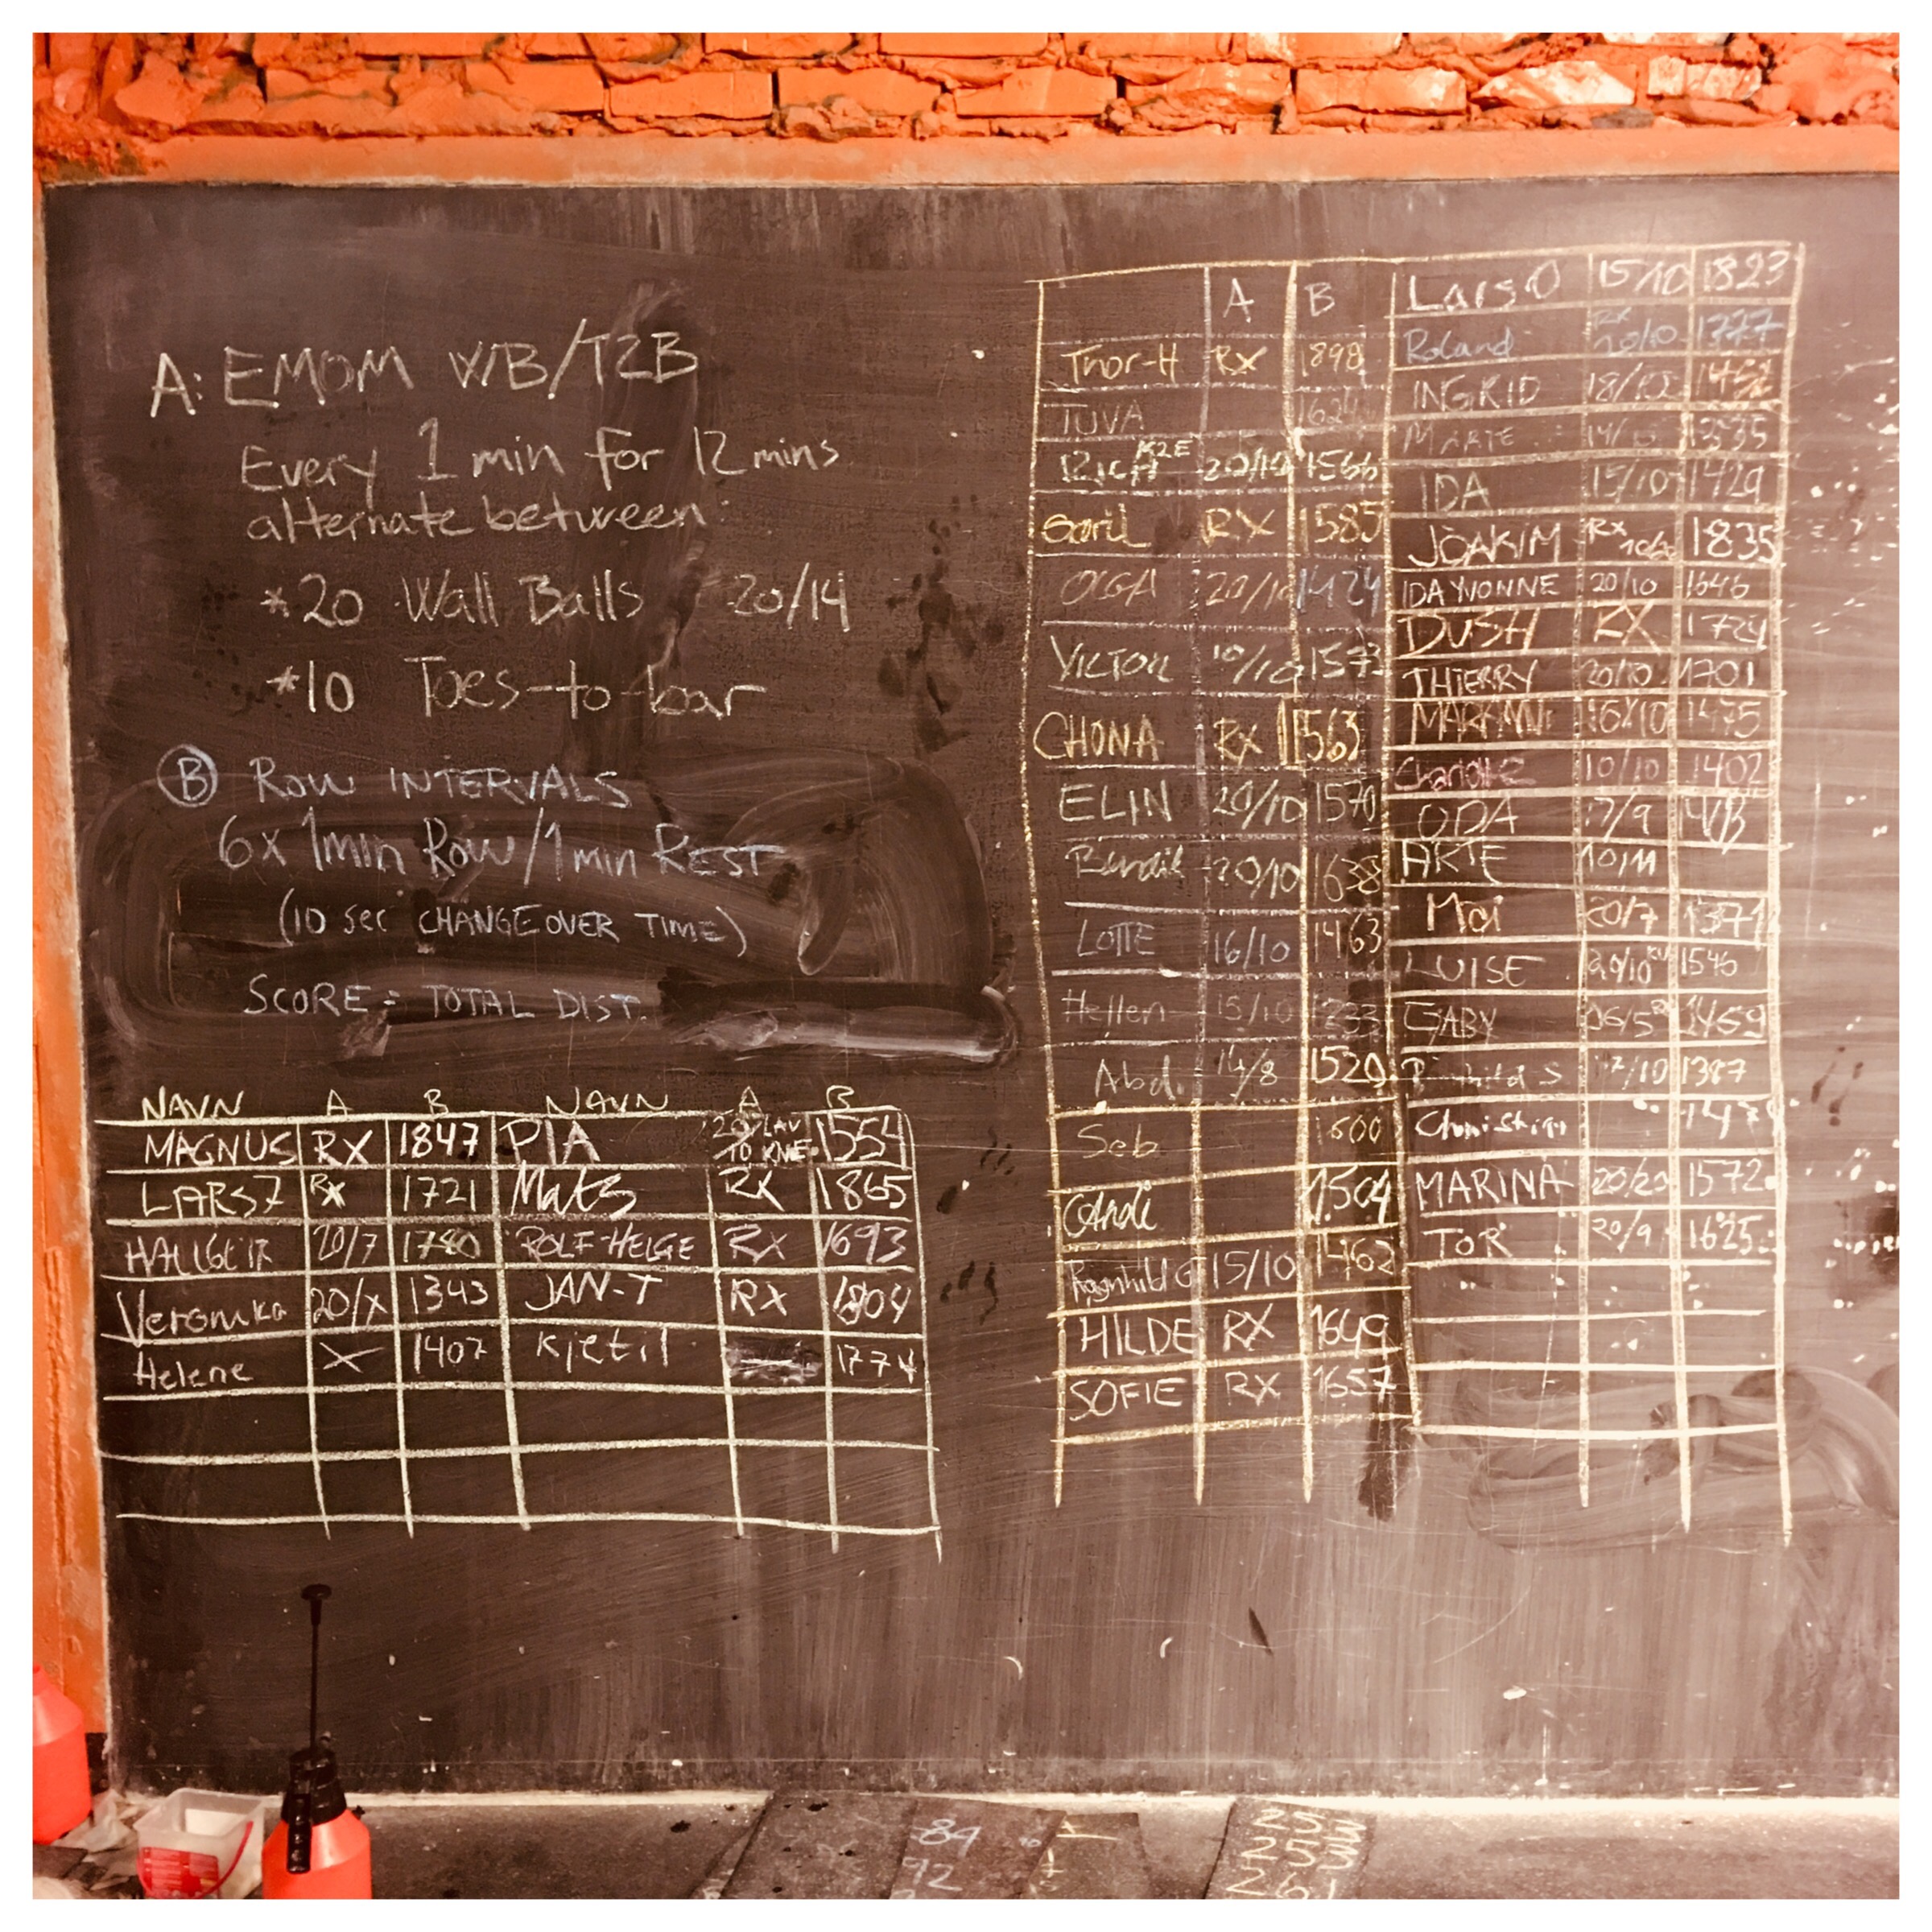 A: EMOM WB/T2B
Every 1 min for 12 mins
alternate between:
*20 Wall Balls 20/14
*10 Toes-to-bar
(B) ROW INTERVALS
6x 1min Row/1 min REST
(10 sec CHANGEOVER TIME)
SCORE = TOTAL DIST.
NAVN A B NAVN A B
MAGNUS RX 1847 PIA 20/10 LAV KNE 1554
LARS7 RX 1721 Mats RX 1865
20/7 1780 ROLF-HELGE RX 1693
Veronika 20/x 1343 JAN-T RX 1804
Helene X 1407 Kjetil 1774
A B
Thor-H RX 1898
TUVA 1624
RICH K2E 20/10 1566
RX 1585
OLGA 20/10 1424
VICTOR 10/10 1573
CHONA RX 1563
ELIN 20/10 1570
Bendik 20/10 1638
LOTTE 16/10 1463
Hellen 15/10 1233
Abd. 14/8 1520
Seb 1600
Andi 1504
Ragnhild G 15/10 1462
HILDE RX 1649
SOFIE RX 1657
Lars O 15/10 1823
Roland RX 1777
INGRID 18/10
MARTE 14/10 1335
IDA 15/10 1429
JOAKIM RX 1835
IDA YVONNE 20/10 1646
DUSH RX 1724
THIERRY 20/10 1701
16/10 1475
Charlotte 10/10 1402
ODA 17/9 1403
10/11
Mai 20/7 1371
LUISE 20/10 1546
GABY 16/5 1469
17/10 1387
Christian 147
MARINA 20/20 1572
TOR 20/9 1625
84
92
25
25